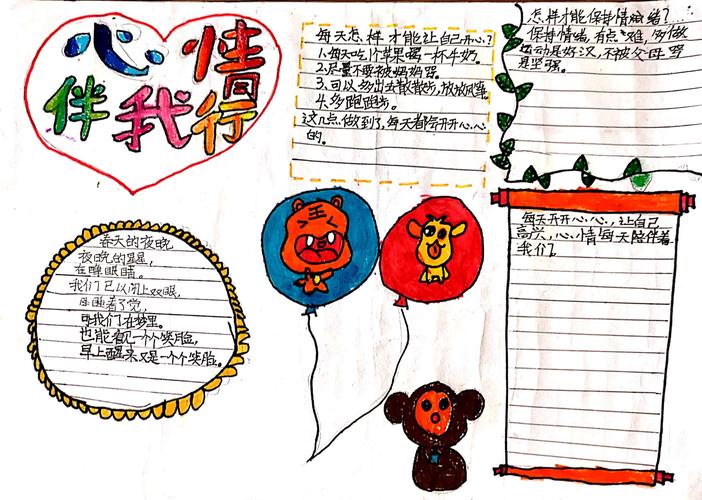 心情
伴我行
每天怎样才能让自己开心?
1.每天吃个苹果喝一杯牛奶。
2.尽量不要被妈妈骂。
3.可以多出去散散步,放放风筝。
4.多跑跑步。
这几点做到了,每天都会开开心心
的。
怎样才能保持情绪?
保持情绪,有点难,多做
运动是好汉,不被父母骂
是坚强。
春天的夜晚
夜晚的星星,
在眨眼睛。
我们已以闭上双眼,
睡着了觉,
我们在梦里。
也能看见一个个笑脸,
早上醒来又是一个个笑脸。
每天开开心心,让自己
高兴,心情每天陪伴着
我们
王